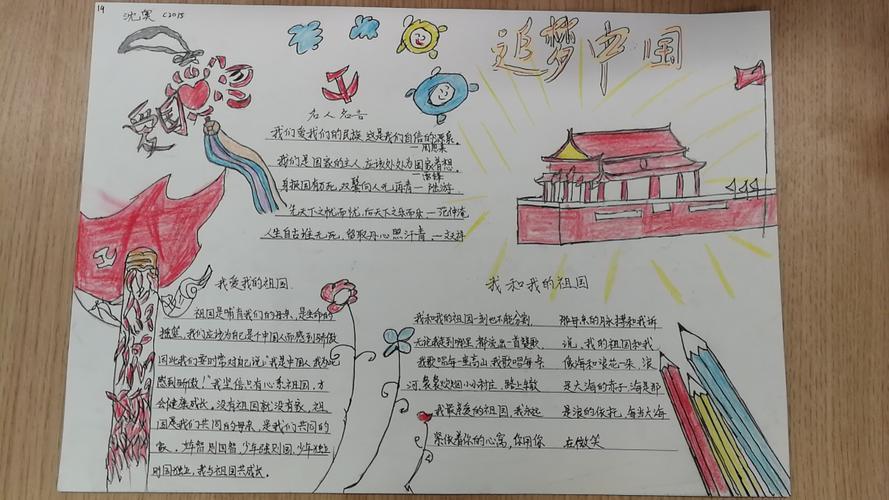 19 沈实 C2015
追梦中国
爱国
名人名言
我们爱我们的民族,这是我们自信的源泉。
—周恩来
我们是国家的主人,应该处处为国家着想。
—雷锋
身报国有万死,双鬓向人无再青—陆游
先天下之忧而忧,后天下之乐而乐—范仲淹
人生自古谁无死,留取丹心照汗青。—文天祥
我爱我的祖国
祖国是哺育我们的母亲,是生命的
摇篮,我们应该为自己是个中国人而感到骄傲
因此我们要时常对自己说:"我是中国人,我为此
感到骄傲!"我坚信只有心系祖国,才
会健康成长,没有祖国就没有家,祖
国是我们共同的母亲,是我们共同的
家。少年智则国智,少年强则国,少年独立
则国独立,我与祖国共成长。
我和我的祖国
我和我的祖国一刻也不能分割,
无论我走到哪里都流出一首赞歌,
我歌唱每一座高山,我歌唱每条
河,袅袅炊烟小小村庄,路上车辙
我最亲爱的祖国,我永远
紧依着你的心窝,你用你
那母亲的脉搏和我诉
说,我的祖国和我
像海和浪花一朵,浪
是大海的赤子,海是那
是浪的依托,每当大海
在微笑